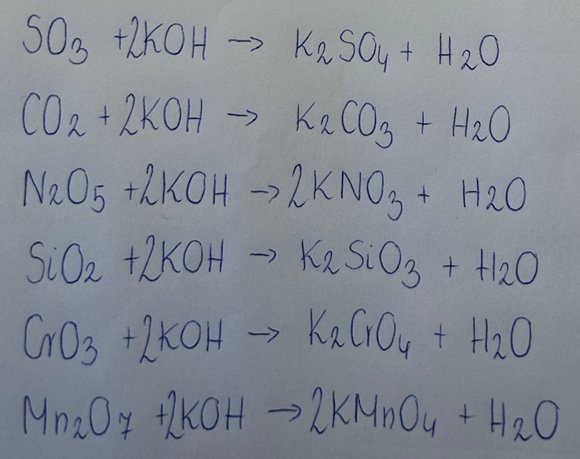 SO3 +2KOH → K2SO4 + H2O
CO2 + 2KOH → K2CO3 + H2O
N2O5 +2KOH → 2KNO3 + H2O
SiO2 +2KOH → K2SiO3 + H2O
CrO3 +2KOH → K2CrO4 + H2O
Mn2O7 +2KOH → 2KMnO4 + H2O